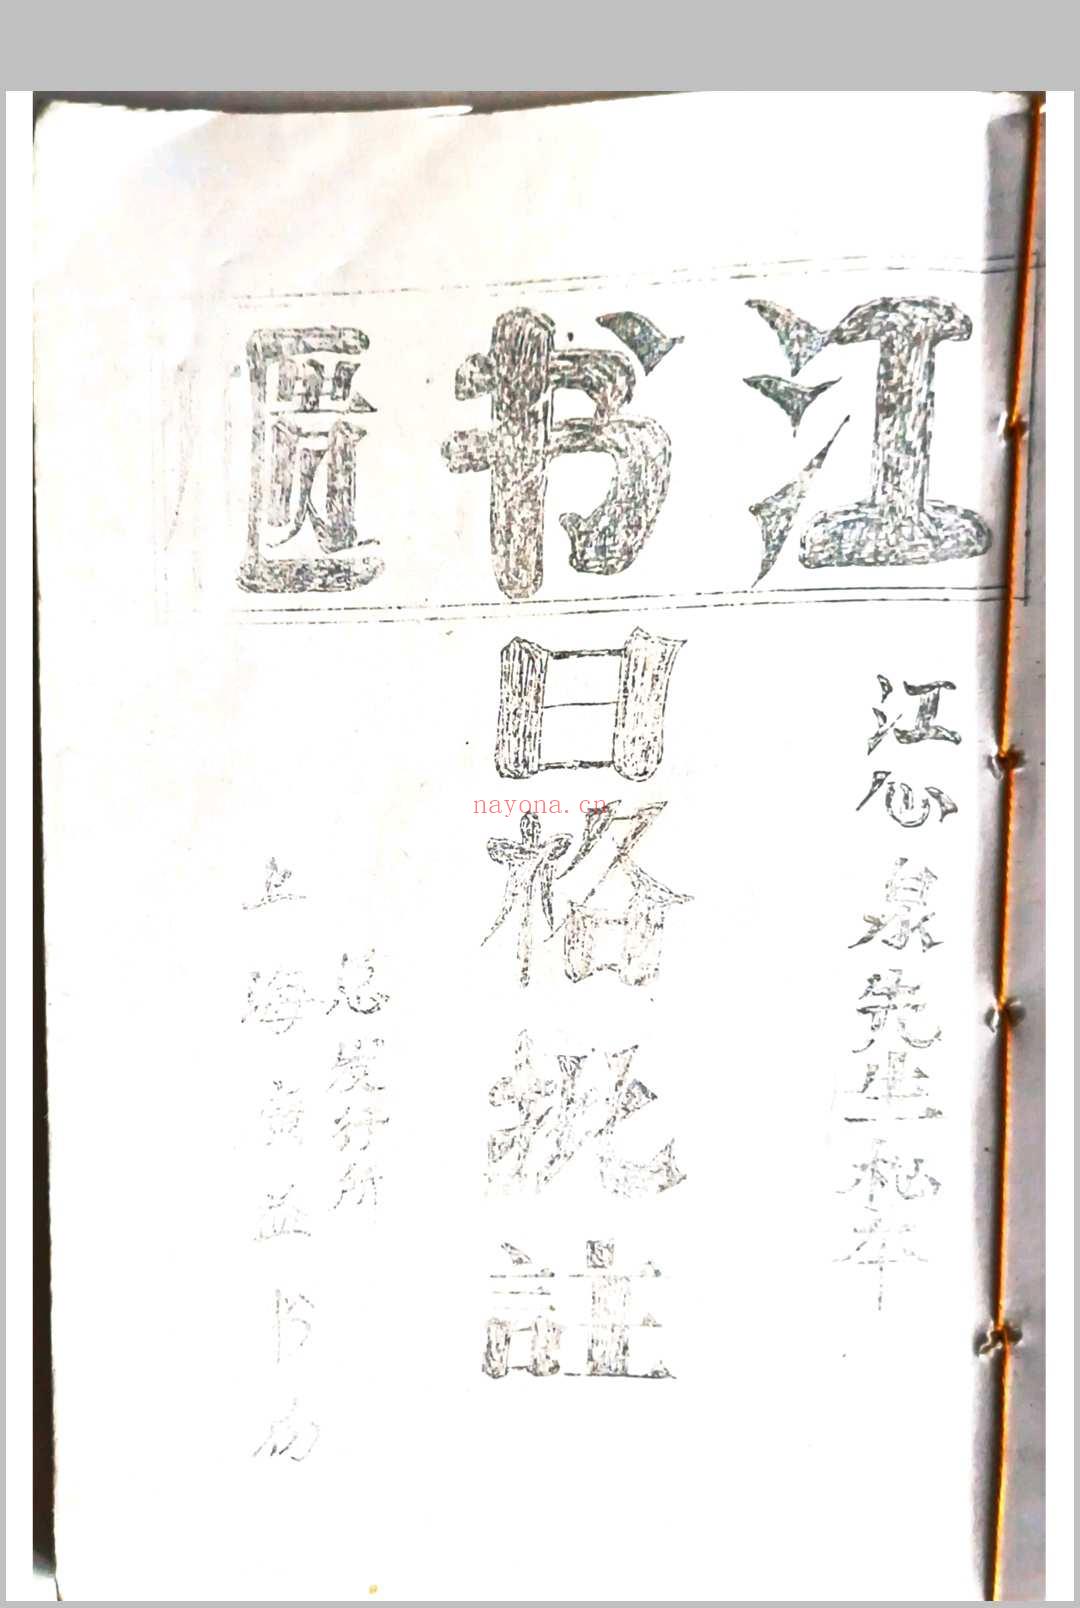 江书匮
江心泉先生
日格批註
nayona.cn
总发行所
上海廣益书局